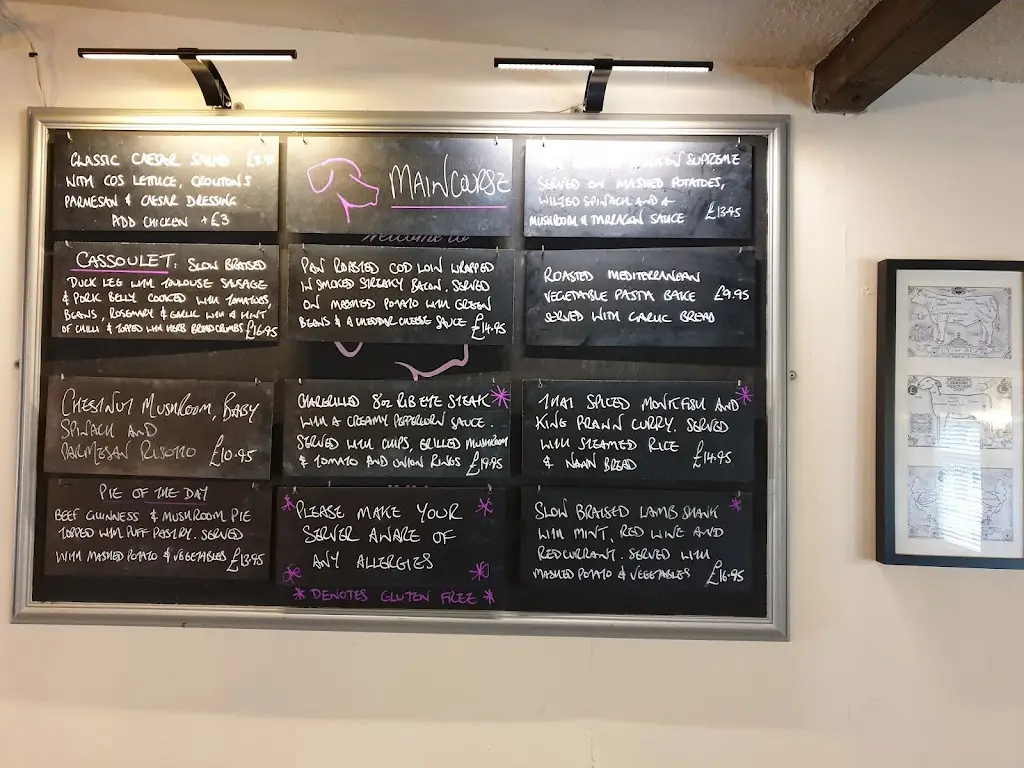 CLASSIC CAESAR SALAD
WITH COS LETTUCE, CROUTONS
PARMESAN & CAESAR DRESSING
ADD CHICKEN +£3
MAINCOURSE
SUPREME
SERVED ON MASHED POTATOES,
WILTED SPINACH AND A
MUSHROOM & TARRAGON SAUCE £13.95
Welcome to
CASSOULET: SLOW BRAISED
DUCK LEG WITH TOULOUSE SAUSAGE
& PORK BELLY COOKED WITH TOMATOES,
BEANS, ROSEMARY & GARLIC WITH A HINT
OF CHILLI & TOPPED WITH HERB BREADCRUMBS £16.95
PAN ROASTED COD LOIN WRAPPED
IN SMOKED STREAKY BACON. SERVED
ON MASHED POTATO WITH GREEN
BEANS & A CHEDDAR CHEESE SAUCE £14.95
ROASTED MEDITERRANEAN
VEGETABLE PASTA BAKE £9.95
SERVED WITH GARLIC BREAD
CHESTNUT MUSHROOM, BABY
SPINACH AND
PARMESAN RISOTTO £10.95
CHARGRILLED 8oz RIB EYE STEAK *
WITH A CREAMY PEPPERCORN SAUCE.
SERVED WITH CHIPS, GRILLED MUSHROOM
& TOMATO AND ONION RINGS £19.95
THAI SPICED MONKFISH AND *
KING PRAWN CURRY. SERVED
WITH STEAMED RICE
& NAAN BREAD £14.95
PIE OF THE DAY
BEEF GUINNESS & MUSHROOM PIE
TOPPED WITH PUFF PASTRY. SERVED
WITH MASHED POTATO & VEGETABLES £13.95
* PLEASE MAKE YOUR *
SERVER AWARE OF
ANY ALLERGIES
* DENOTES GLUTEN FREE *
SLOW BRAISED LAMB SHANK *
WITH MINT, RED WINE AND
REDCURRANT. SERVED WITH
MASHED POTATO & VEGETABLES £16.95